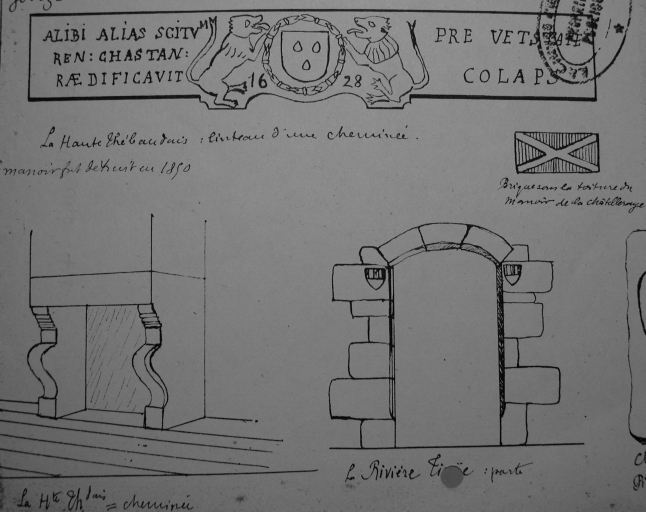 ALIBI ALIAS SCITVMM
REN: CHASTAN:
RÆDIFICAVIT
16 28
PRE VETS
COLAPS
La Haute Thébaudais : linteau d'une cheminée.
manoir fut détruit en 1850
Brique sous la toiture du
manoir de la
La Rivière : porte
La Hte Thdais = cheminée